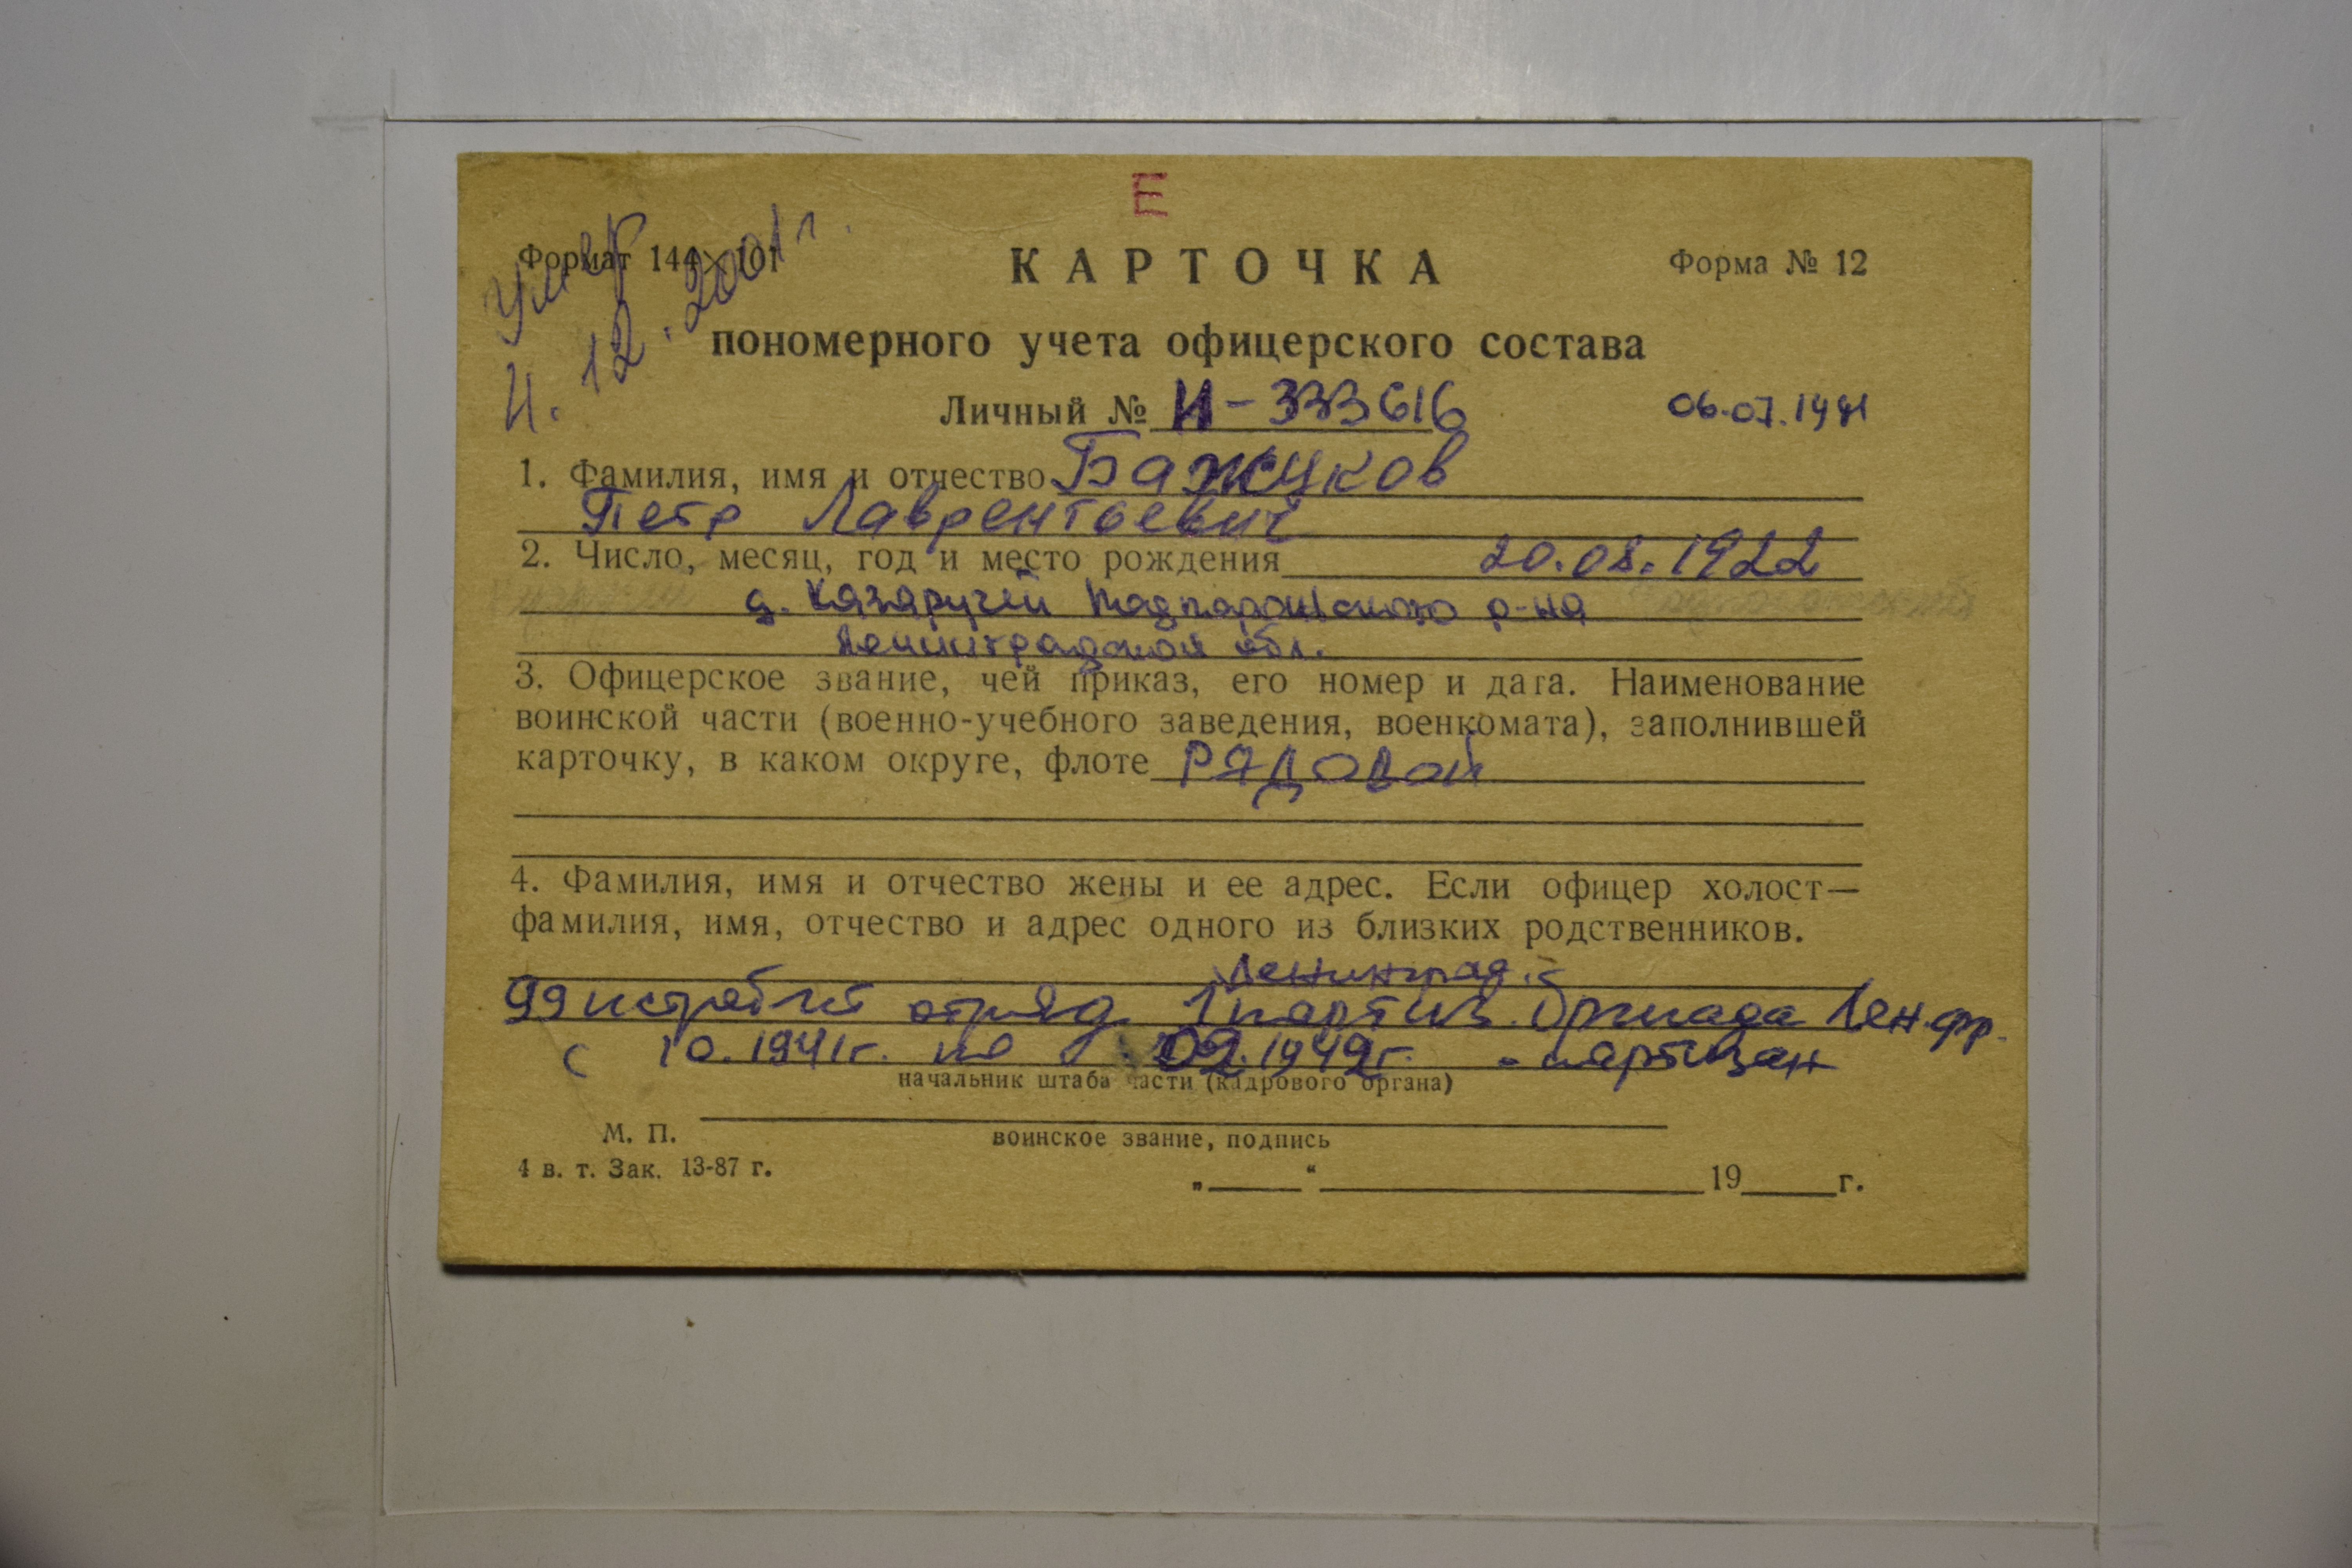 Е
Умер
4.12.2001 г.
Формат 144×101
КАРТОЧКА
Форма № 12
пономерного учета офицерского состава
Личный № И-333616
06.07.1941
1. Фамилия, имя и отчество Бажуков
Петр Лаврентьевич
2. Число, месяц, год и место рождения 20.08.1922
д. Казаручей Подпорожского р-на
Ленинградской обл.
3. Офицерское звание, чей приказ, его номер и дата. Наименование
воинской части (военно-учебного заведения, военкомата), заполнившей
карточку, в каком округе, флоте РЯДОВОЙ
4. Фамилия, имя и отчество жены и ее адрес. Если офицер холост—
фамилия, имя, отчество и адрес одного из близких родственников.
Ленинград.
99 истребит отряд 1 партиз. бригада Лен.фр.
с 10.1941г. по 02.1942г. - партизан
начальник штаба части (кадрового органа)
М. П.
воинское звание, подпись
4 в. т. Зак. 13-87 г.
„ “ 19 г.